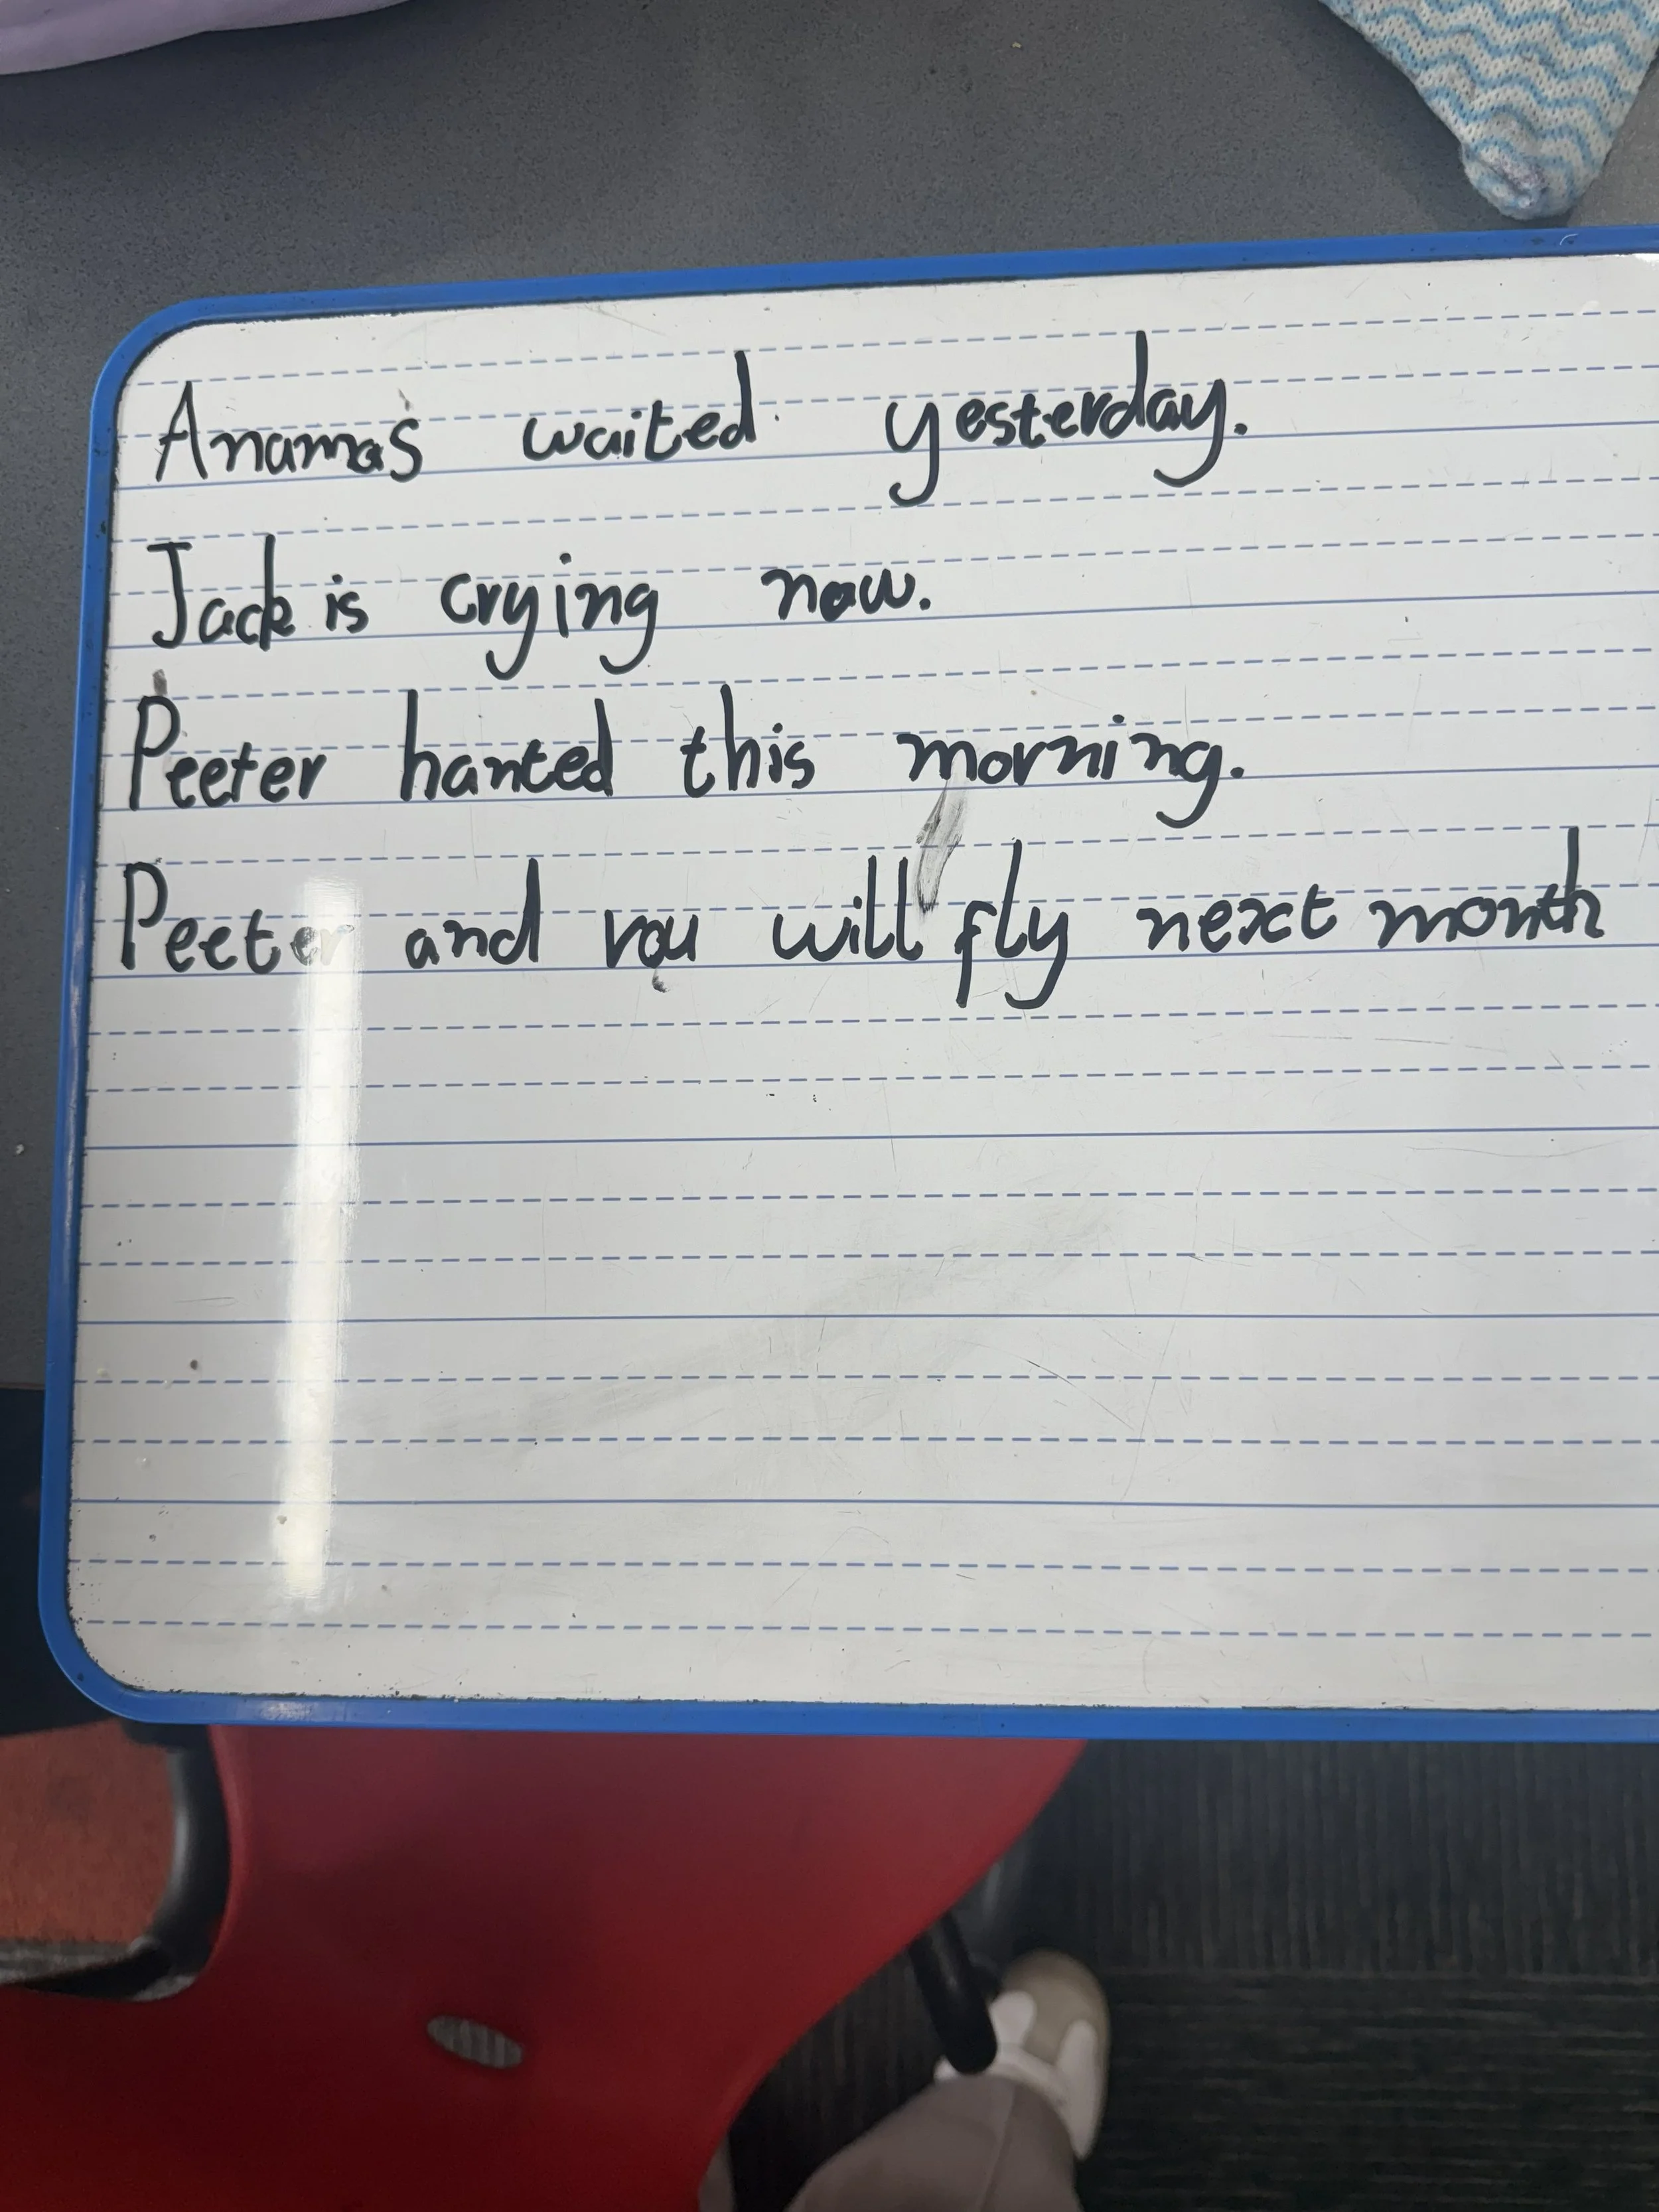 Anamas waited yesterday.
Jack is crying now.
Peeter hanted this morning.
Peeter and you will fly next month